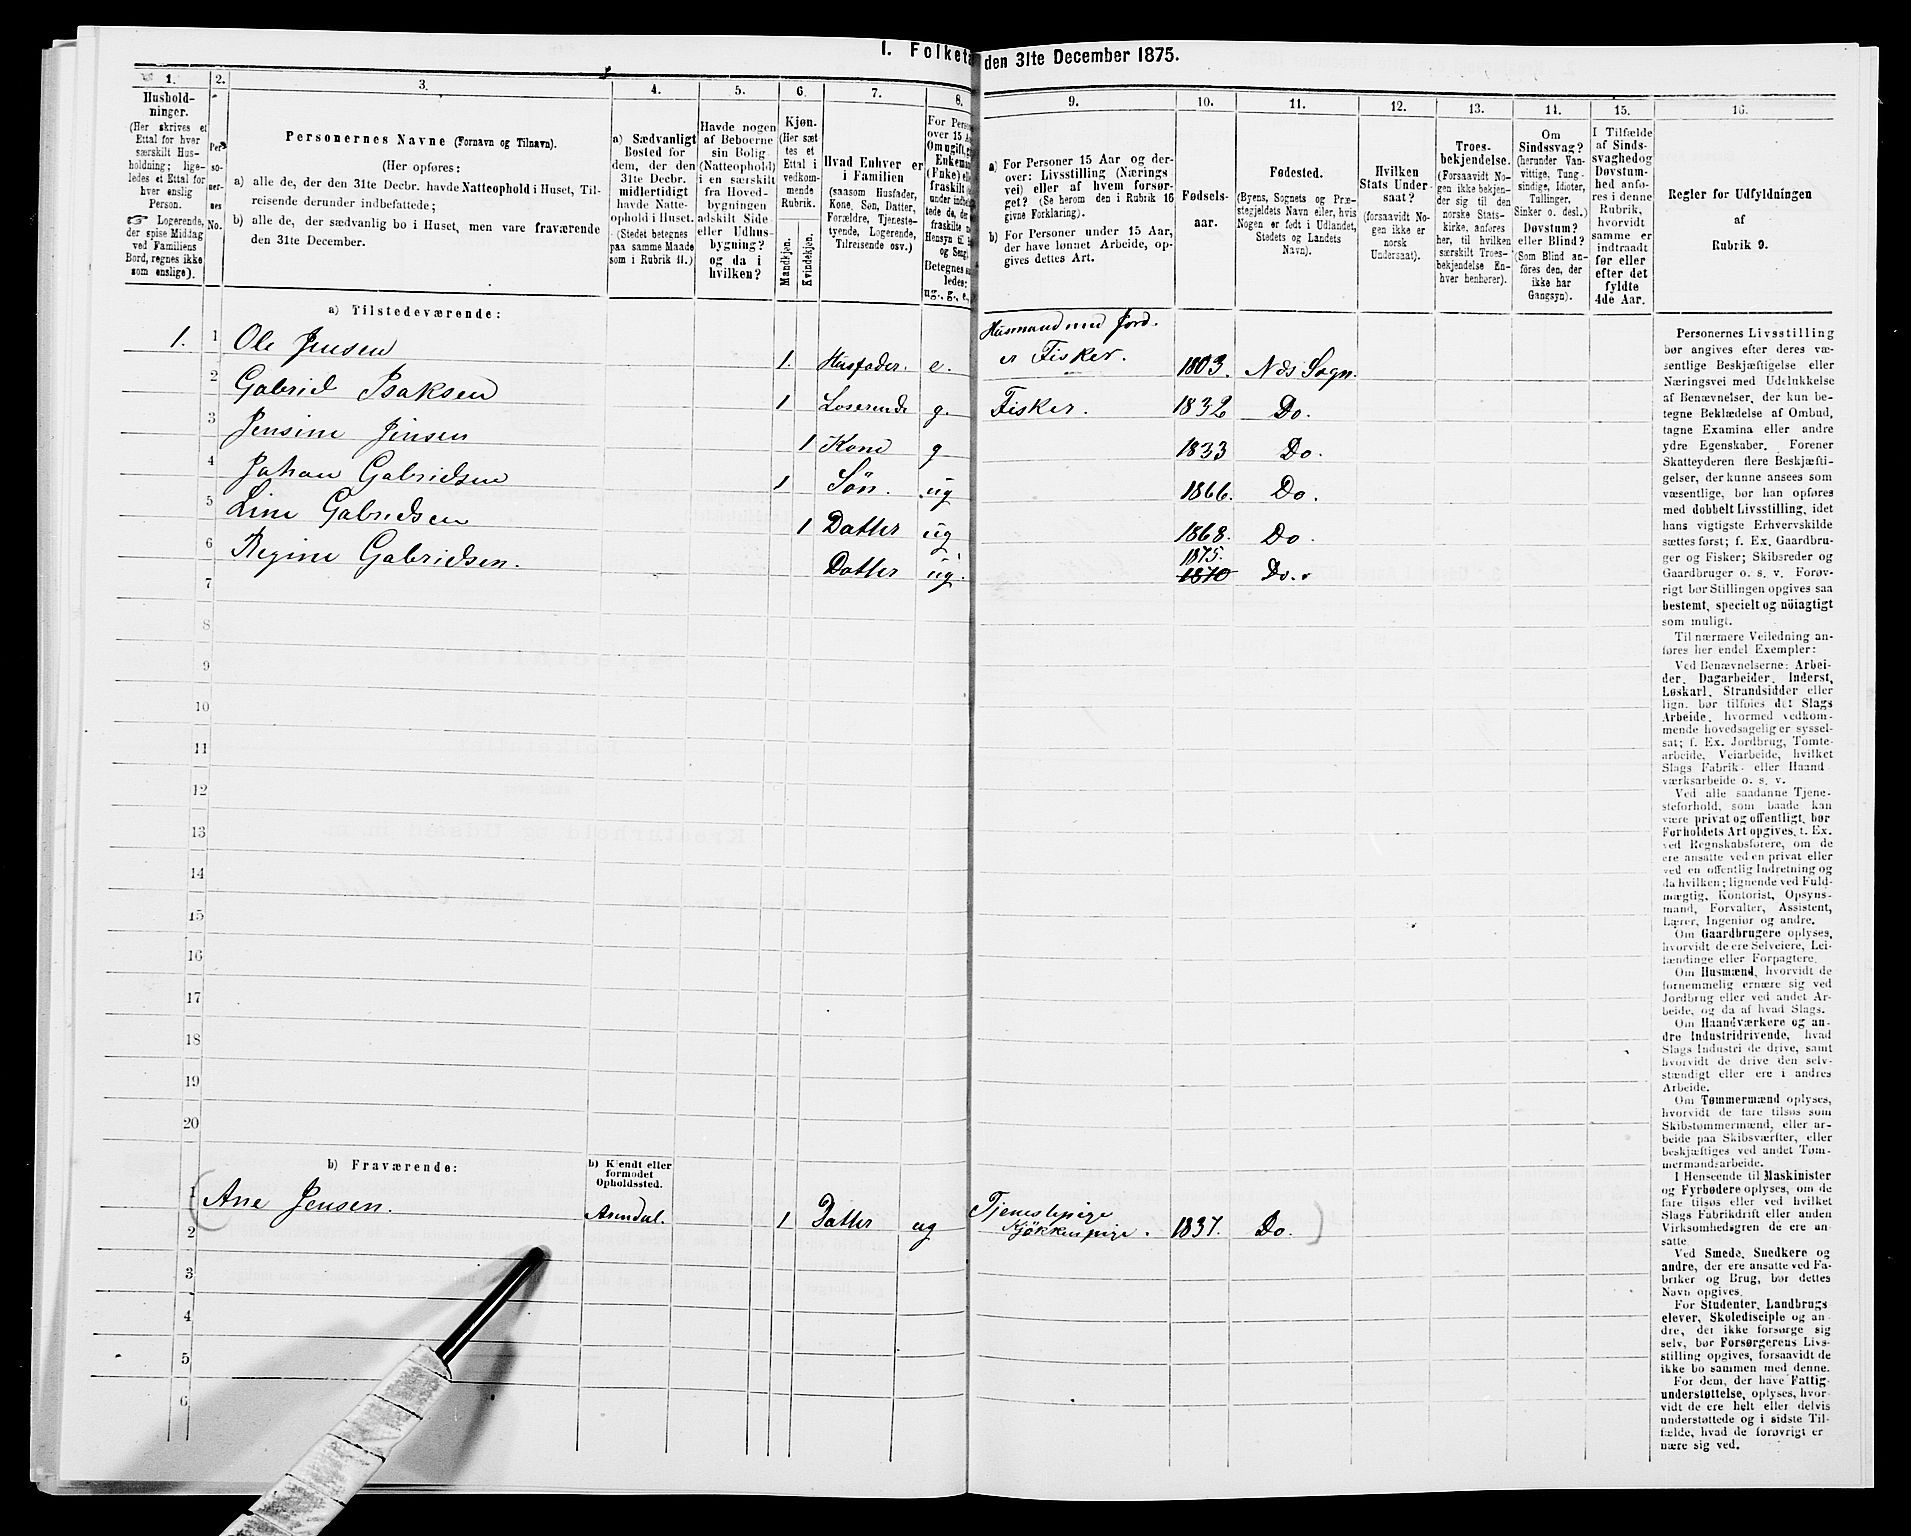 I. Folketæ
den 31te December 1875.
1. 2. 3. 4. 5. 6. 7. 8. 9. 10. 11. 12. 13. 14. 15. 16.
Hushold-
ninger.
(Her skrives et
Ettal for hver
særskilt Hus-
holdning; lige-
ledes et Ettal for
hver enslig
Person.
☞ Logerende,
der spise Middag
ved Familiens
Bord, regnes ikke
som enslige).
Per-
so-
ner-
nes
No.
Personernes Navne (Fornavn og Tilnavn).
(Her opføres:
a) alle de, der den 31te Decbr. havde Natteophold i Huset, Til-
reisende derunder indbefattede;
b) alle de, der sædvanlig bo i Huset, men vare fraværende
den 31te December.
a) Sædvanligt
Bosted for
dem, der den
31te Decbr.
midlertidigt
havde Natte-
ophold i Huset.
(Stedet betegnes
paa samme Maade
som i Rubrik 11.)
Havde nogen
af Beboerne
sin Bolig
(Natteophold)
i en særskilt
fra Hoved-
bygningen
adskilt Side-
eller Udhus-
bygning?
og da i
hvilken?
Kjøn.
(Her sæt-
tes et
Ettal i
vedkom-
mende
Rubrik.
Mandkjøn.
Kvindekjøn.
Hvad Enhver er
i Familien
(saasom Husfader,
Kone, Søn, Datter,
Forældre, Tjeneste-
tyende, Logerende,
Tilreisende osv.)
For Person
over 15 A
Om ugift, g
Enkeman
(Enke) el
fraskilt
under indbe
tede de, de
fraskilte
Hensyn til
og Seng
Betegnes s
ledes:
ug., g., e.,
a) For Personer 15 Aar og der-
over: Livsstilling (Nærings
vei) eller af hvem forsør-
get? (Se herom den i Rubrik 16
givne Forklaring).
b) For Personer under 15 Aar,
der have lønnet Arbeide, op-
gives dettes Art.
Fødsels-
aar.
Fødested.
(Byens, Sognets og Præ-
stegjeldets Navn eller, hvis
Nogen er født i Udlandet,
Stedets og Landets
Navn).
Hvilken
Stats Under-
saat?
(forsaavidt No-
gen ikke er
norsk
Undersaat).
Troes-
bekjendelse.
(Forsaavidt No-
gen ikke bekjen-
der sig til den
norske Stats-
kirke, anføres
her, til hvilken
særskilt Troes-
bekjendelse En-
hver henhører).
Om
Sindssvag?
(herunder Van-
vittige, Tung-
sindige, Idioter,
Tullinger,
Sinker o. desl.)
Døvstum?
eller Blind?
(Som Blind an-
føres den, der
ikke har
Gangsyn).
I Tilfælde
af Sinds-
svaghed og
Døvstum-
hed anfø-
res i denne
Rubrik,
hvorvidt
samme er
indtraadt
før eller
efter det
fyldte
4de Aar.
Regler for Udfyldningen
af
Rubrik 9.
a) Tilstedeværende:
1. 1 Ole Jensen 1. Husfader. e. Husmand med Jord. og Fisker. 1803. Næs Sogn.
2 Gabriel Isaksen 1 Loserende g. Fisker. 1832 Do.
3 Jensine Jensen 1 Kone g 1833 Do.
4 Johan Gabrielsen 1 Søn. ug 1866. Do.
5 Line Gabrielsen 1 Datter ug 1868. Do.
6 Regine Gabrielsen. Datter ug. 1875. 1870 Do.
7
8
9
10
11
12
13
14
15
16
17
18
19
20
b) Fraværende:
b) Kjendt eller
formodet
Opholdssted.
1 (Ane Jensen. Arendal. 1 Datter ug Tjenestepige Kjøkkenpige. 1837. Do. )
2
3
4
5
6
Personernes Livsstilling
bør angives efter deres væ-
sentlige Beskjæftigelse eller
Næringsvei med Udelukkelse
af Benævnelser, der kun be-
tegne Beklædelse af Ombud,
tagne Examina eller andre
ydre Egenskaber. Forener
Skatteyderen flere Beskjæfti-
gelser, der kunne ansees som
væsentlige, bør han opføres
med dobbelt Livsstilling, idet
hans vigtigste Erhvervskilde
sættes først; f. Ex. Gaardbru-
ger og Fisker; Skibsreder og
Gaardbruger o. s. v. Forøv-
rigt bør Stillingen opgives saa
bestemt, specielt og nöiagtigt
som muligt.
Til nærmere Veiledning an-
føres her endel Exempler:
Ved Benævnelserne: Arbei-
der, Dagarbeider, Inderst,
Løskarl, Strandsidder eller
lign. bør tilføies det Slags
Arbeide, hvormed vedkom-
mende hovedsagelig er syssel-
sat; f. Ex. Jordbrug, Tomte-
arbeide, Veiarbeide, hvilket
Slags Fabrik- eller Haand-
værksarbeide o. s. v.
Ved alle saadanne Tjene-
steforhold, som baade kan
være privat og offentligt, bør
Forholdets Art opgives, t. Ex.
ved Regnskabsførere, om de
ere ansatte ved en privat eller
ved en offentlig Indretning og
da hvilken; lignende ved Fuld-
mægtig, Kontorist, Opsyns-
mand, Forvalter, Assistent,
Lærer, Ingeniør og andre.
Om Gaardbrugere oplyses,
hvorvidt de ere Selveiere, Lei-
lændinge eller Forpagtere.
Om Husmænd, hvorvidt de
fornemmelig ernære sig ved
Jordbrug eller ved andet Ar-
beide, og da af hvad Slags.
Om Haandværkere og an-
dre Industridrivende, hvad
Slags Industri de drive, samt
hvorvidt de drive den selv-
stændigt eller ere i andres
Arbeide.
Om Tømmermænd oplyses,
hvorvidt de fare tilsøs som
Skibstømmermænd, eller ar-
beide paa Skibsværfter, eller
beskjæftiges ved andet Tøm-
mermandsarbeide.
I Henseende til Maskinister
og Fyrbødere oplyses, om de
fare tilsøs eller ved hvilket
Slags Fabrikdrift eller anden
Virksomhedsgren de ere an-
satte.
Ved Smede, Snedkere og
andre, der ere ansatte ved Fa-
briker og Brug, bør dettes
Navn opgives.
For Studenter, Landbrugs-
elever, Skoledisciple og an-
dre, der ikke forsørge sig
selv, bør Forsørgerens Livs-
stilling opgives, forsaavidt de
ikke bo sammen med denne.
For dem, der have Fattig-
understøttelse, oplyses, hvor-
vidt de ere helt eller delvis
understøttede og i sidste Til-
fælde, hvad de forøvrigt er-
nære sig ved.